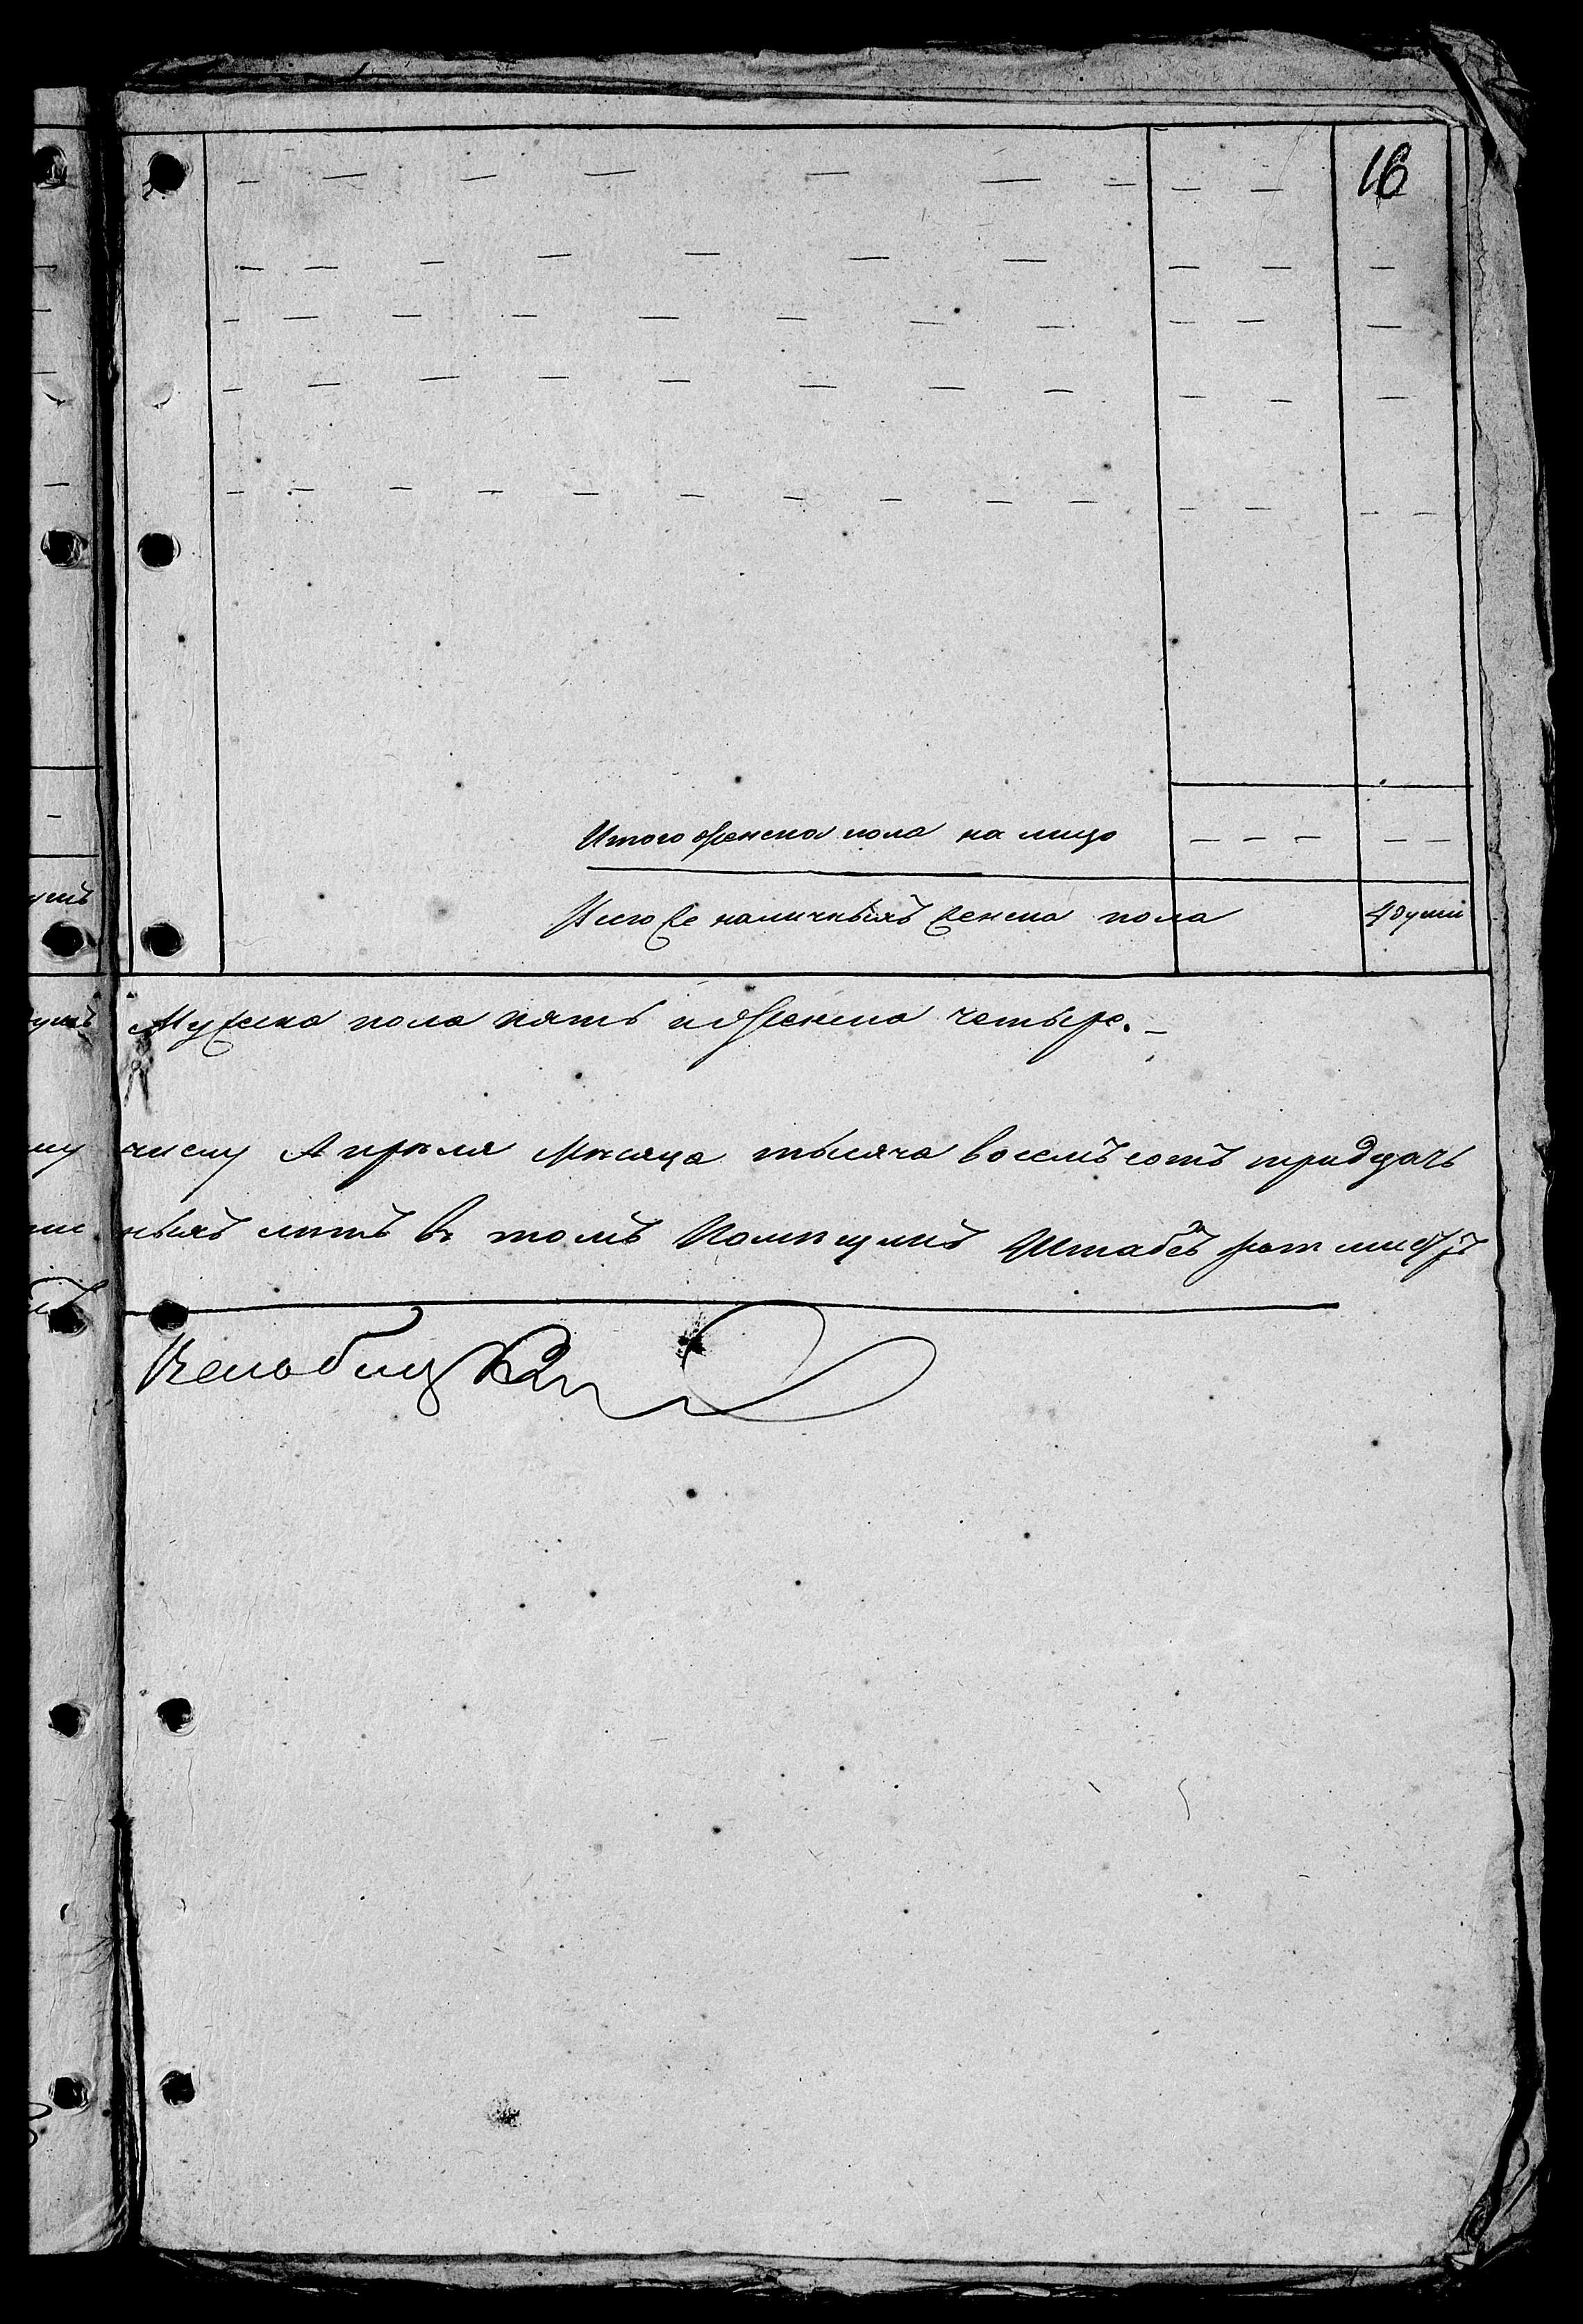 16
Итого женска пола на лицо
Всего же наличныхъ женска пола 4 души
Мужска пола пять и женска четыре.
числу Апреля Месяца тысяча восемъ сотъ тридцать
ныхъ летъ въ томъ Помещикъ Штабсъ ротмистръ